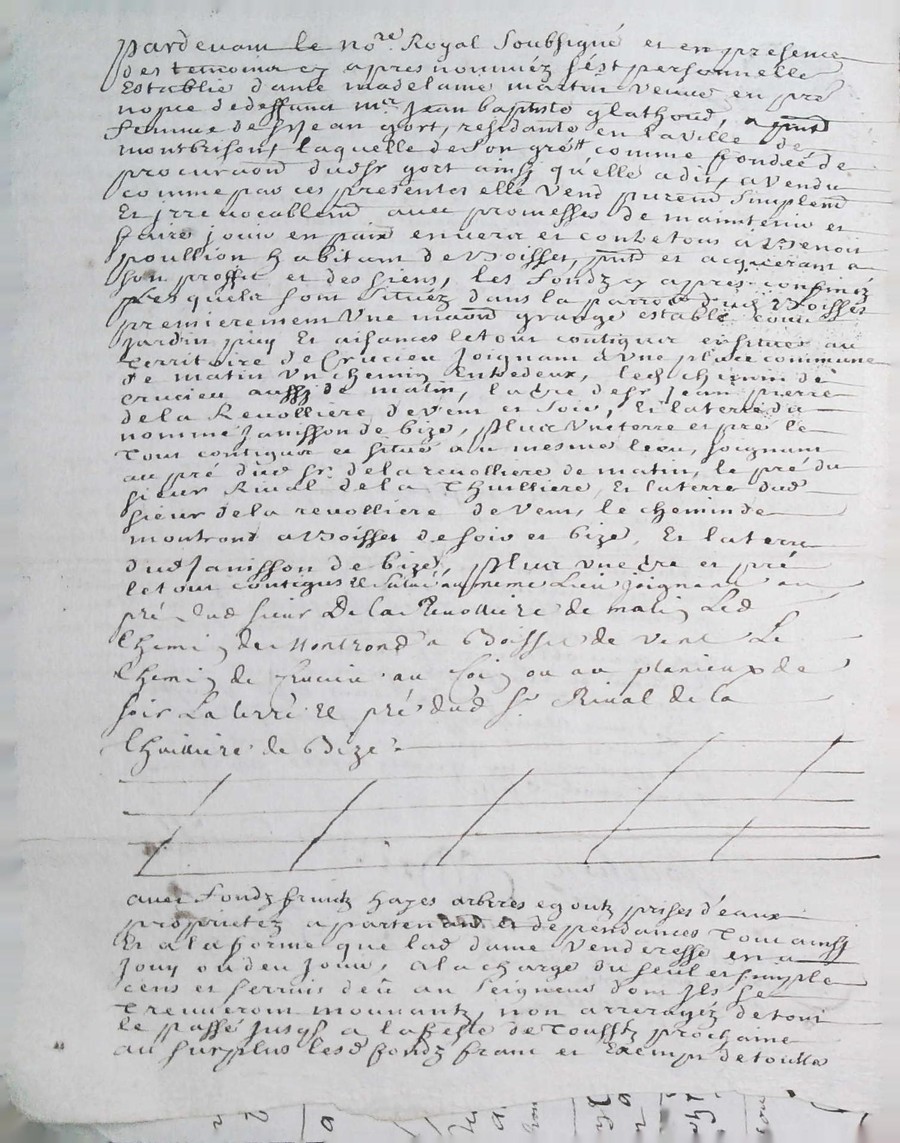 pardevant le no.re Royal soubsigné et en presence
des temoins cy apres nommez s'est personnelle
Establie dame madelaine martin veuve en pre
nopce dedeffunt mr Jean baptiste glathoud, a pnt
femme de sr Jean gort, residante en la ville de
montbrison, laquelle de son gré, comme fondée de
procuraon dudsr gort ainsy quelle a dit, a vendu
comme par ces presentes elle vend puremt simplemt
Et jrrevocablemt avec promesses de maintenir et
faire jouir en paix envers et contre tous a Benoit
poullion habitant de Boisset, pnt et acquerant a
son proffit et des siens, les fondz cy apres confinez
lesquels sont situez dans la parroe dud Boisset
premierement Une maon grange estable cour
Jardin puy Et aisances le tout contigus et situes au
territoire de Crucieu Joignant a vne place commune
de matin vn chemin entredeux, led chemin de
crucieu aussy de matin, la tre de sr Jean pierre
de la Revolliere de vent et soir, Et la terre du
nommé Janisson de bize, plus vne terre et pré le
tout contigus et situé au mesme lieu, joignant
au pré dud sr. de la revolliere de matin, le pré du
sieur Rival de la Thuilliere, Et la terre dud
sieur de la revolliere de vent, le chemin de
montrond a Boisset de soir et bize, Et la terre
dud Janisson de bize, plus vne tre et pré
le tout contigus et situé au meme Lieu joignant au
pré dud sieur De la Revolliere de matin Led
Chemin de Montrond a Boisset de vent Le
Chemin de Crucieu au ou au planieux de
soir La terre et pré dud sr Rival de la
thuilliere de Bize
avec fondz fruitz hayes arbres egoutz prises d'eaux
proprietez apartenances et dependances Tout ainsy
Et a la forme que lad dame venderesse en a
Jouy ou deu Jouir, a la charge du seul et simple
cens et servis deü au seigneur dont jls se
treuveront mouvantz, non arreragéz de tout
le passé jusqs a la feste de Toussts prochaine
au surplus lesd fondz franc et Exempt de toutte